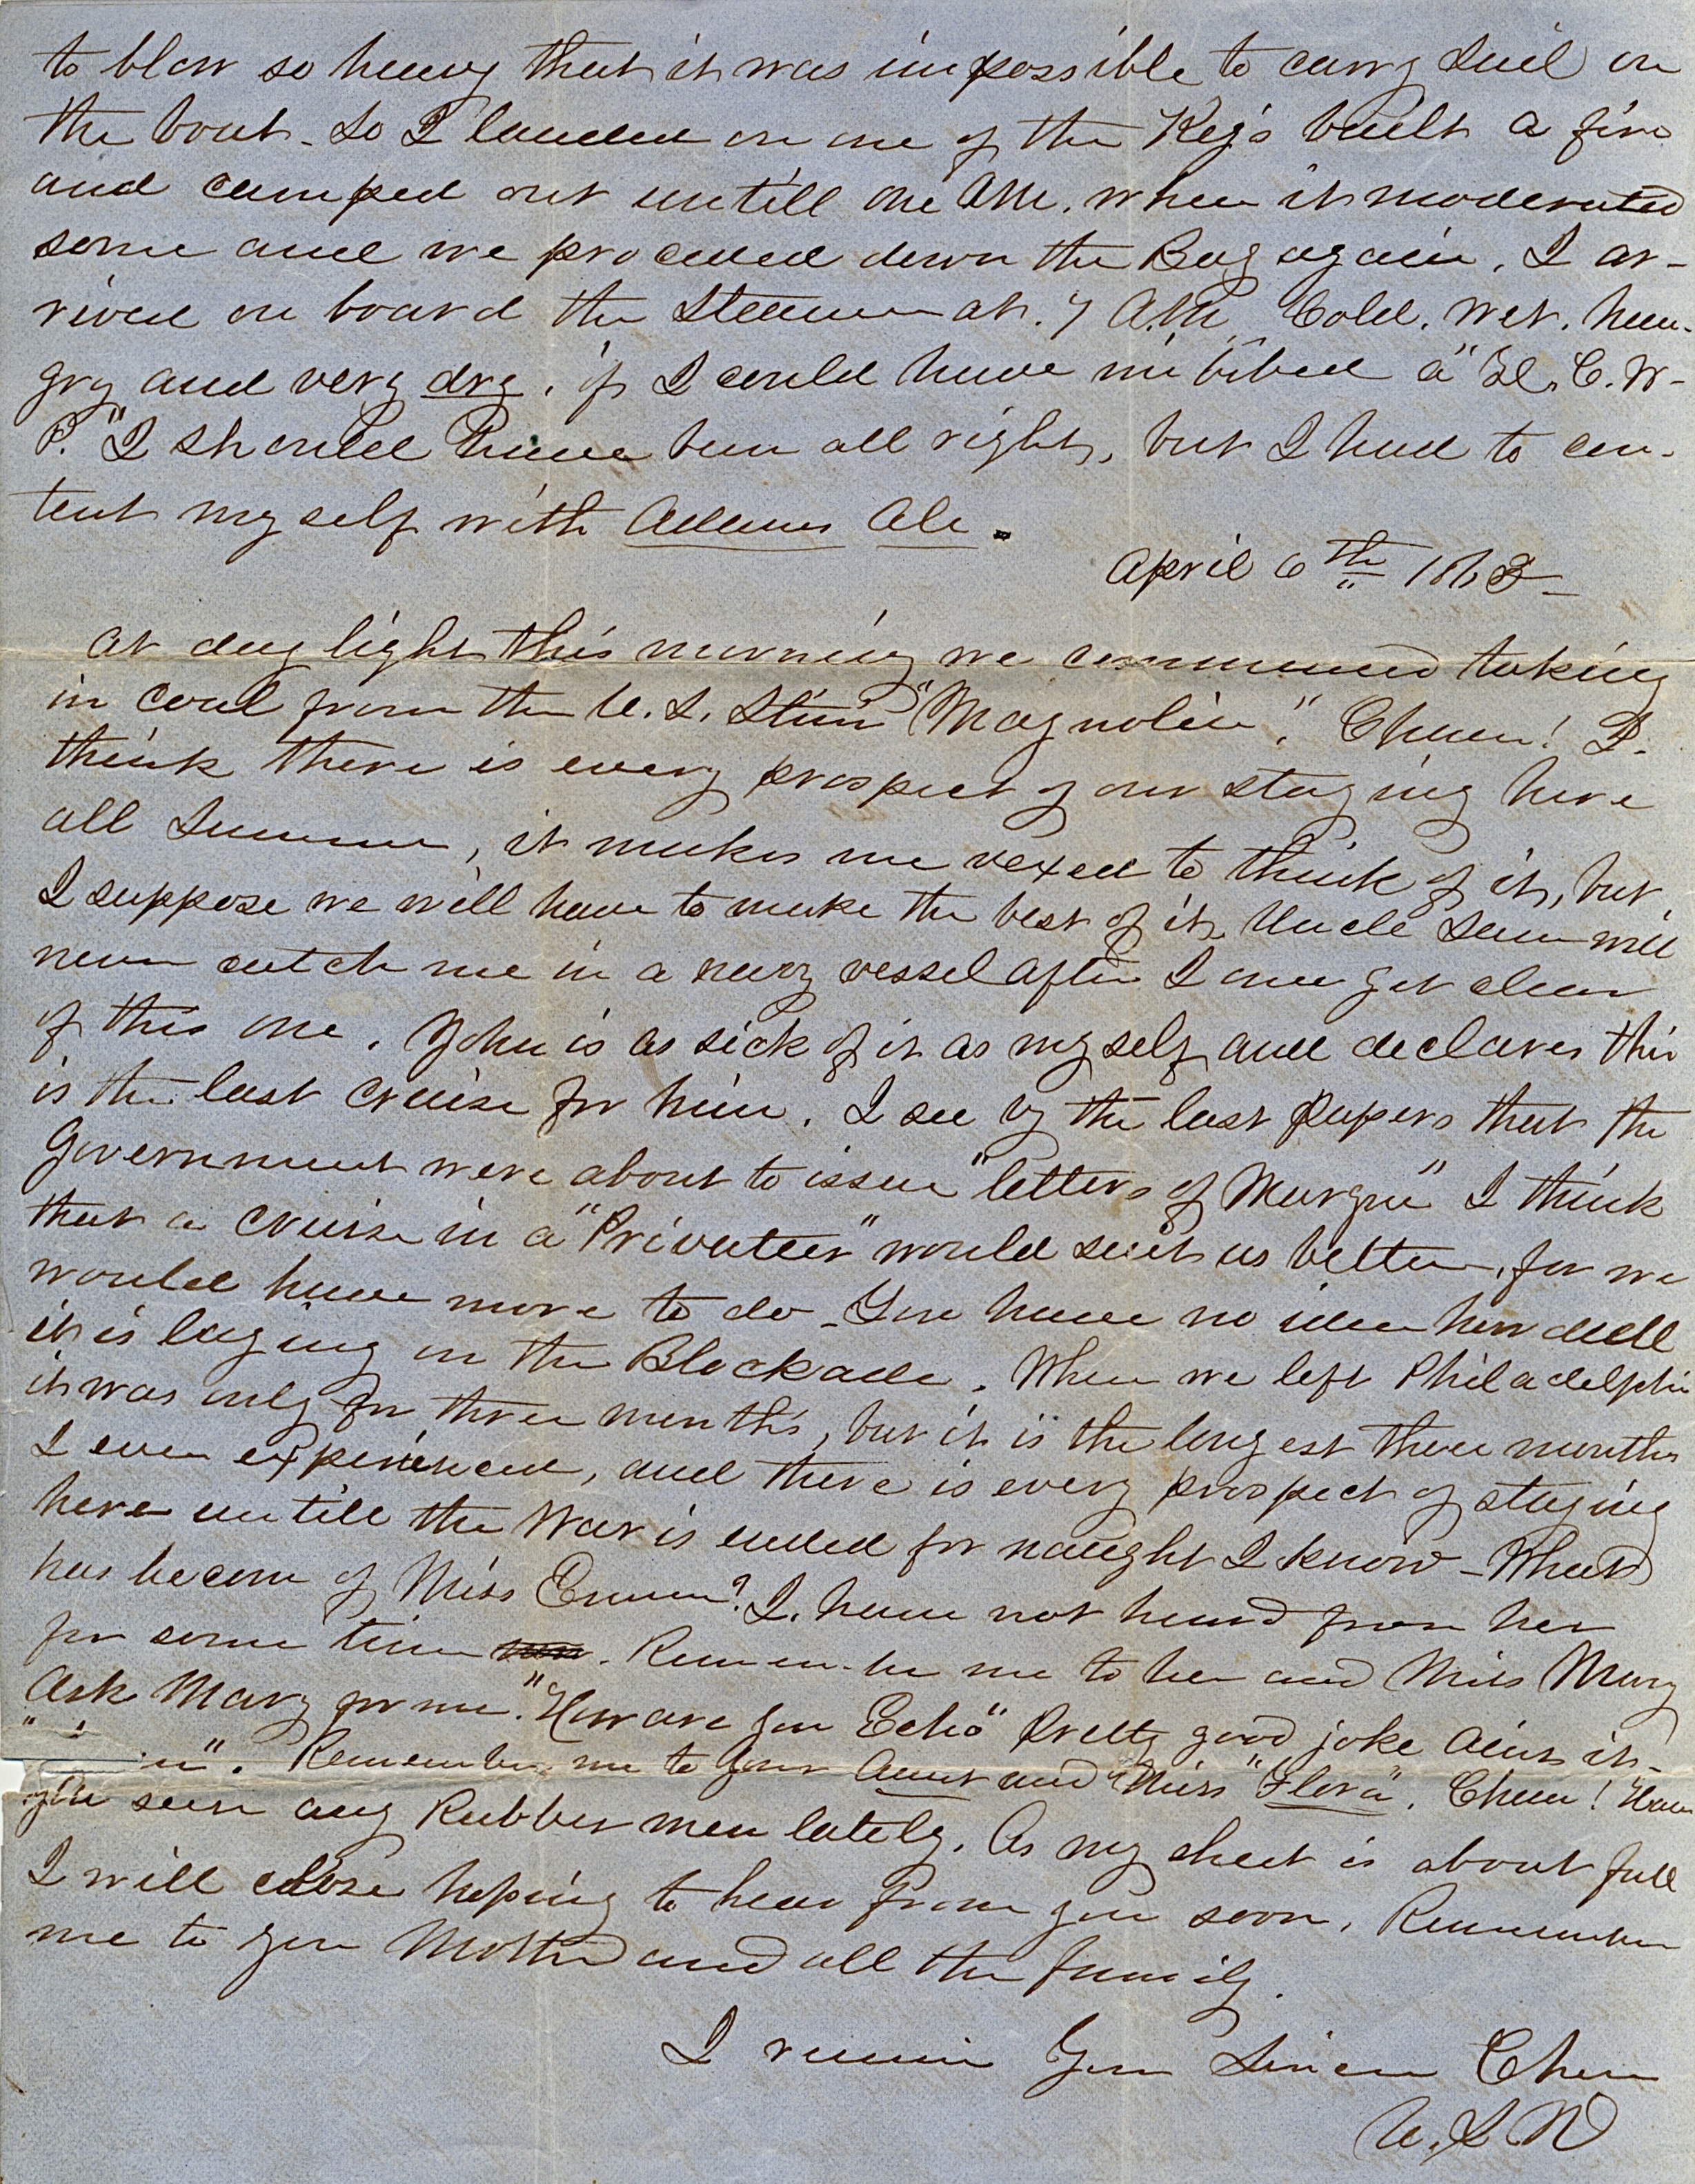 to blow so heavy that it was impossible to carry sail on
the boat. So I landed on one of the Key's built a fire
and camped out untill one AM. when it moderated
some and we proceeded down the Bay again. I ar-
rived on board the Steamer at. 7 A.M. Cold. wet. hun-
gry and very dry. if I could have imbibed a "H. C. W-
P." I should have been all right, but I had to con-
tent myself with Adams Ale.
April 6th 1863
At day light this morning we commenced taking
in coal from the U. S. Stm "Magnolia". Chum! I
think there is every prospect of our staying here
all Summer, it makes me vexed to think of it, but
I suppose we will have to make the best of it. Uncle Sam will
never catch me in a navy vessel after I once get clear
of this one. John is as sick of it as myself and declares this
is the last cruise for him. I see by the last papers that the
Government were about to issue "letters of Marque" I think
that a cruise in a "Privateer" would suit us better, for we
would have more to do. You have no idea how dull
it is laying on the Blockade. When we left Philadelphia
it was only for three month's, but it is the longest three months
I ever experienced, and there is every prospect of staying
here untill the War is ended for naught I know - What
has become of Miss Emma? I. have not heard from her
for some time. Remember me to her and Miss Mary
Ask Mary for me. "How are you Echo" Pretty good joke aint it.
Remember me to your Aunt and "Miss "Flora". Chum! Have
you seen any Rubber men lately. As my sheet is about full
I will close hoping to hear from you soon. Remember
me to your Mother and all the family.
I remain Your Sincere Chum
W. L. N